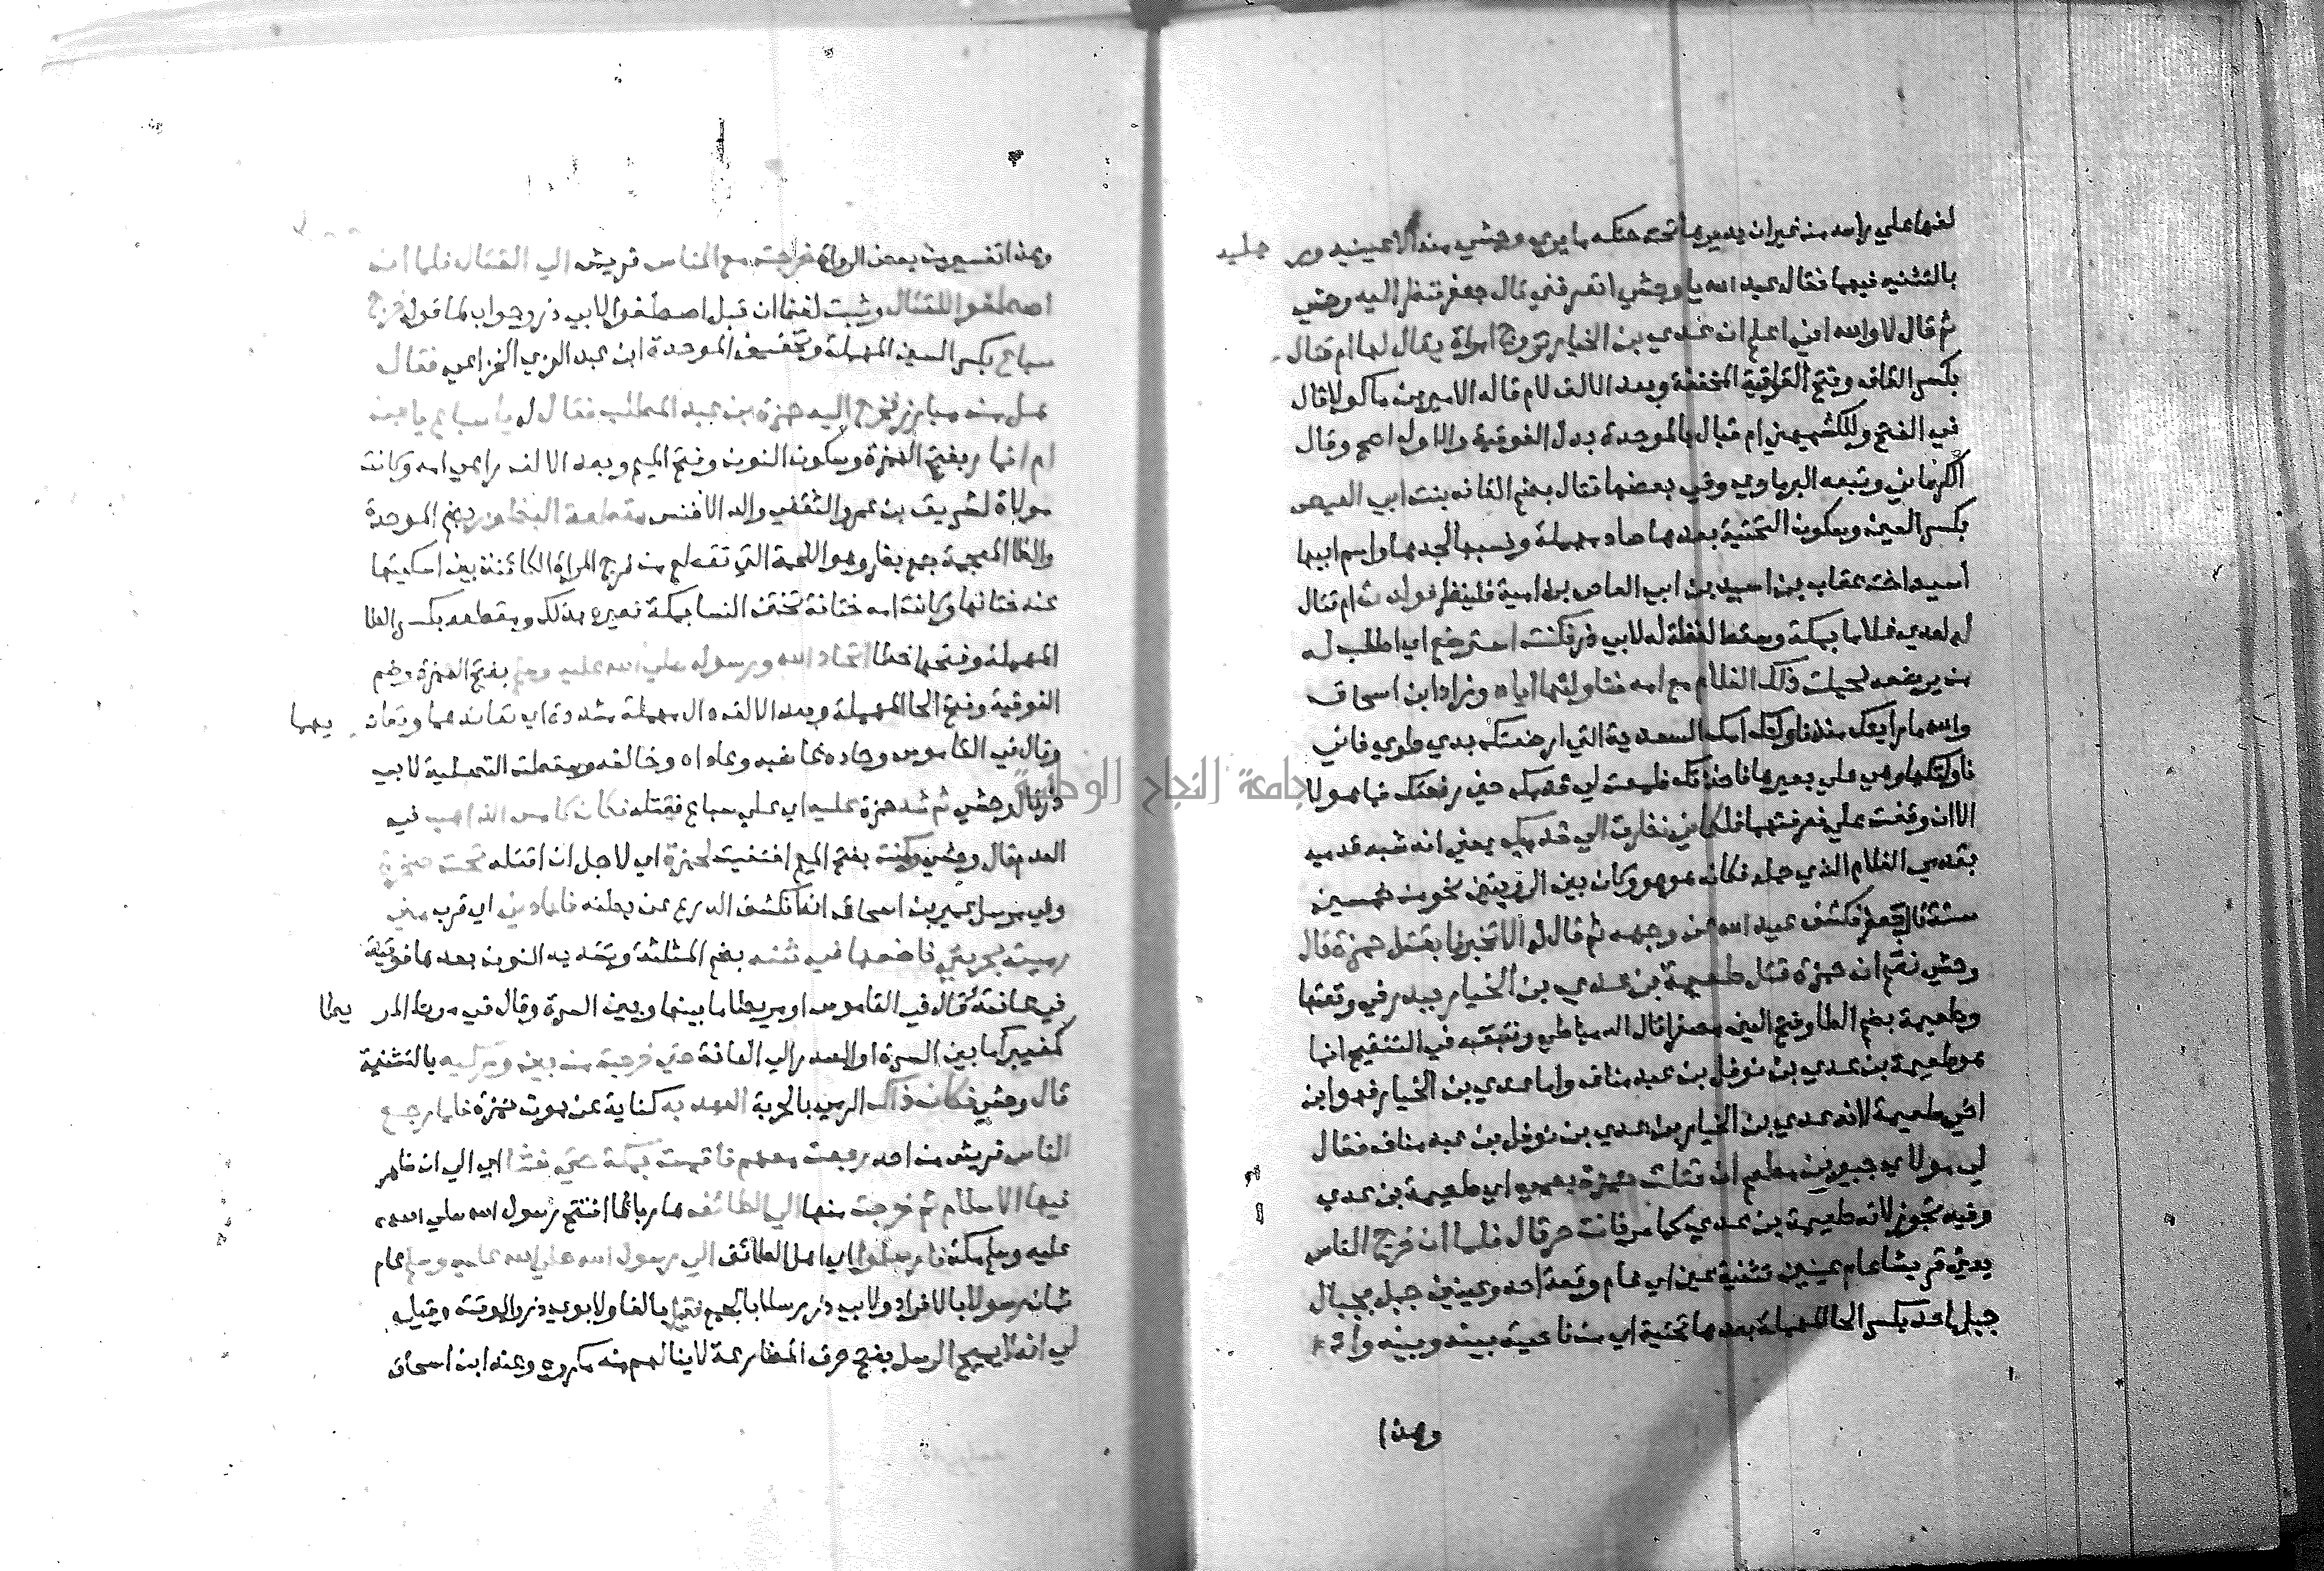 لفها علي راسه من غير ان يديرها تحت حنكه ما يري وحشي منه الا عينيه ور جليه
بالتثنية فيهما فقال عبيد الله يا وحشي اتعرفني قال جعفر فنظر اليه وحشي
ثم قال لا والله اني اعلم ان عدي بن الخيار تزوج امراة يقال لها ام قتال
بكسر القاف وفتح الفوقية المخففة وبعد الالف لام قاله الامير بن ماكولا قال
في الفتح وللكشميهني ام قبال بالموحدة بدل الفوقية والاول اصح وقال
الكرماني وتبعه البرماوي وفي بعضها قتال بضم القاف بنت ابي العيص
بكسر العين وسكون التحتية بعدها صاد مهملة ونسبها لجدها واسم ابيها
اسيد اخت عتاب بن اسيد بن ابي العاص بن امية فلينظر فولدت ام قتال
له لعدي غلاما بمكة وسقط لفظة له لابي ذر فكنت استرضع اي اطلب له
من يرضعه فحملت ذلك الغلام مع امه فناولتها اياه وزاد ابن اسحاق
والله ما رايتك منذ ناولتك امك السعدية التي ارضعتك بذي طوي فاني
ناولتكها وهي علي بعيرها فاخذتك فلمعت لي قدمك حين رفعتك فما هو الا
الا ان وقفت علي فعرفتهما فلكاني نظرت الي قدميك يعني انه شبه قدميه
بقدمي الغلام الذي حمله فكان هو هو وكان بين الرؤيتين نحو من خمسين
سنة قال جعفر فكشف عبيد الله عن وجهه ثم قال له الا تخبرنا بقتل حمزة قال
وحشي نعم ان حمزة قتل طعيمة بن عدي بن الخيار ببدر في وقعتها
وطعيمة بضم الطا وفتح العين مصغرا قال الدمياطي وتبعه في التنقيح انما
هو طعيمة بن عدي بن نوفل بن عبد مناف واما عدي بن الخيار فهو ابن
اخي طعيمة لانه عدي بن الخيار بن عدي بن نوفل بن عبد مناف فقال
لي مولاي جبير بن مطعم ان قتلت حمزة بعمي اي طعيمة بن عدي
وفيه تجوز لانه طعيمة بن عدي كما مر فانت حر قال فلما ان خرج الناس
يعني قريشا عام عينين تثنية عين اي عام وقعة احد وعينين جبل بجبال
جبل احد بكسر الحا المهملة بعدها تحتية اي من ناحية بينه وبينه واد
وهذا
وهذا تفسير من بعض الرواة خرجت مع الناس قريش الي القتال فلما ان
اصطفوا للقتال وثبت لفظ ان قبل اصطفوا لابي ذر وجواب لما قوله خرج
سباع بكسر السين المهملة وتخفيف الموحدة ابن عبد العزي الخزاعي فقال
هل من مبارز فخرج اليه حمزة بن عبد المطلب فقال له يا سباع يا ابن
ام انمار بفتح الهمزة وسكون النون وفتح الميم وبعد الالف را هي امه وكانت
مولاة لشريق بن عمرو الثقفي والد الاخنس مقطعة البظور بضم الموحدة
والظا المعجمة جمع بظر وهو اللحمة التي تقطع من فرج المراة الكائنة بين اسكتيها
عند ختانها وكانت امه ختانة تختن النسا بمكة فعيره بذلك ومقطعه بكسر الطا
المهملة وفتحها خطا اتحاد الله ورسوله صلي الله عليه وسلم بفتح الهمزة وضم
الفوقية وفتح الحا المهملة وبعد الالف دال مهملة مشددة اي تعاندهما وتعاد يهما
وقال في القاموس وحاده غاضبه وعاداه وخالفه وسقطت التصلية لابي
ذر قال وحشي ثم شد حمزة عليه اي علي سباع فقتله فكان كامس الذاهب في
العدم قال وحشي وكمنت بفتح الميم اختفيت لحمزة اي لاجل ان اقتله تحت صخرة
وفي مرسل عمير بن اسحاق انه انكشف الدرع عن بطنه فلما دنا اي قرب مني
رميته بحربتي فاضعها في ثنته بضم المثلثة وتشديد النون بعدها فوقية
في عانته قال في القاموس او مريطا ما بينها وبين السرة وقال في مرط المر يطا
كغبيرا ما بين السرة او الصدر الي العانة حتي خرجت من بين وركيه بالتثنية
قال وحشي فكان ذاك الرمي بالحربة العهد به كناية عن موت حمزة فلما رجع
الناس قريش من احد رجعت معهم فاقمت بمكة حتي فشا اي الي ان ظهر
فيها الاسلام ثم خرجت منها الي الطائف هاربا لما افتتح رسول الله صلي الله
عليه وسلم مكة فارسلوا اي اهل الطائف الي رسول الله صلي الله عليه وسلم عام
ثمان رسولا بالافراد ولابي ذر رسلا بالجمع فقيل بالفا ولابوي ذر والوقت وقيل
لي انه لا يهيج الرسل بفتح حرف المضارعة لا ينالهم منه مكروه وعند ابن اسحاق
جامعة النجاح الوطنية